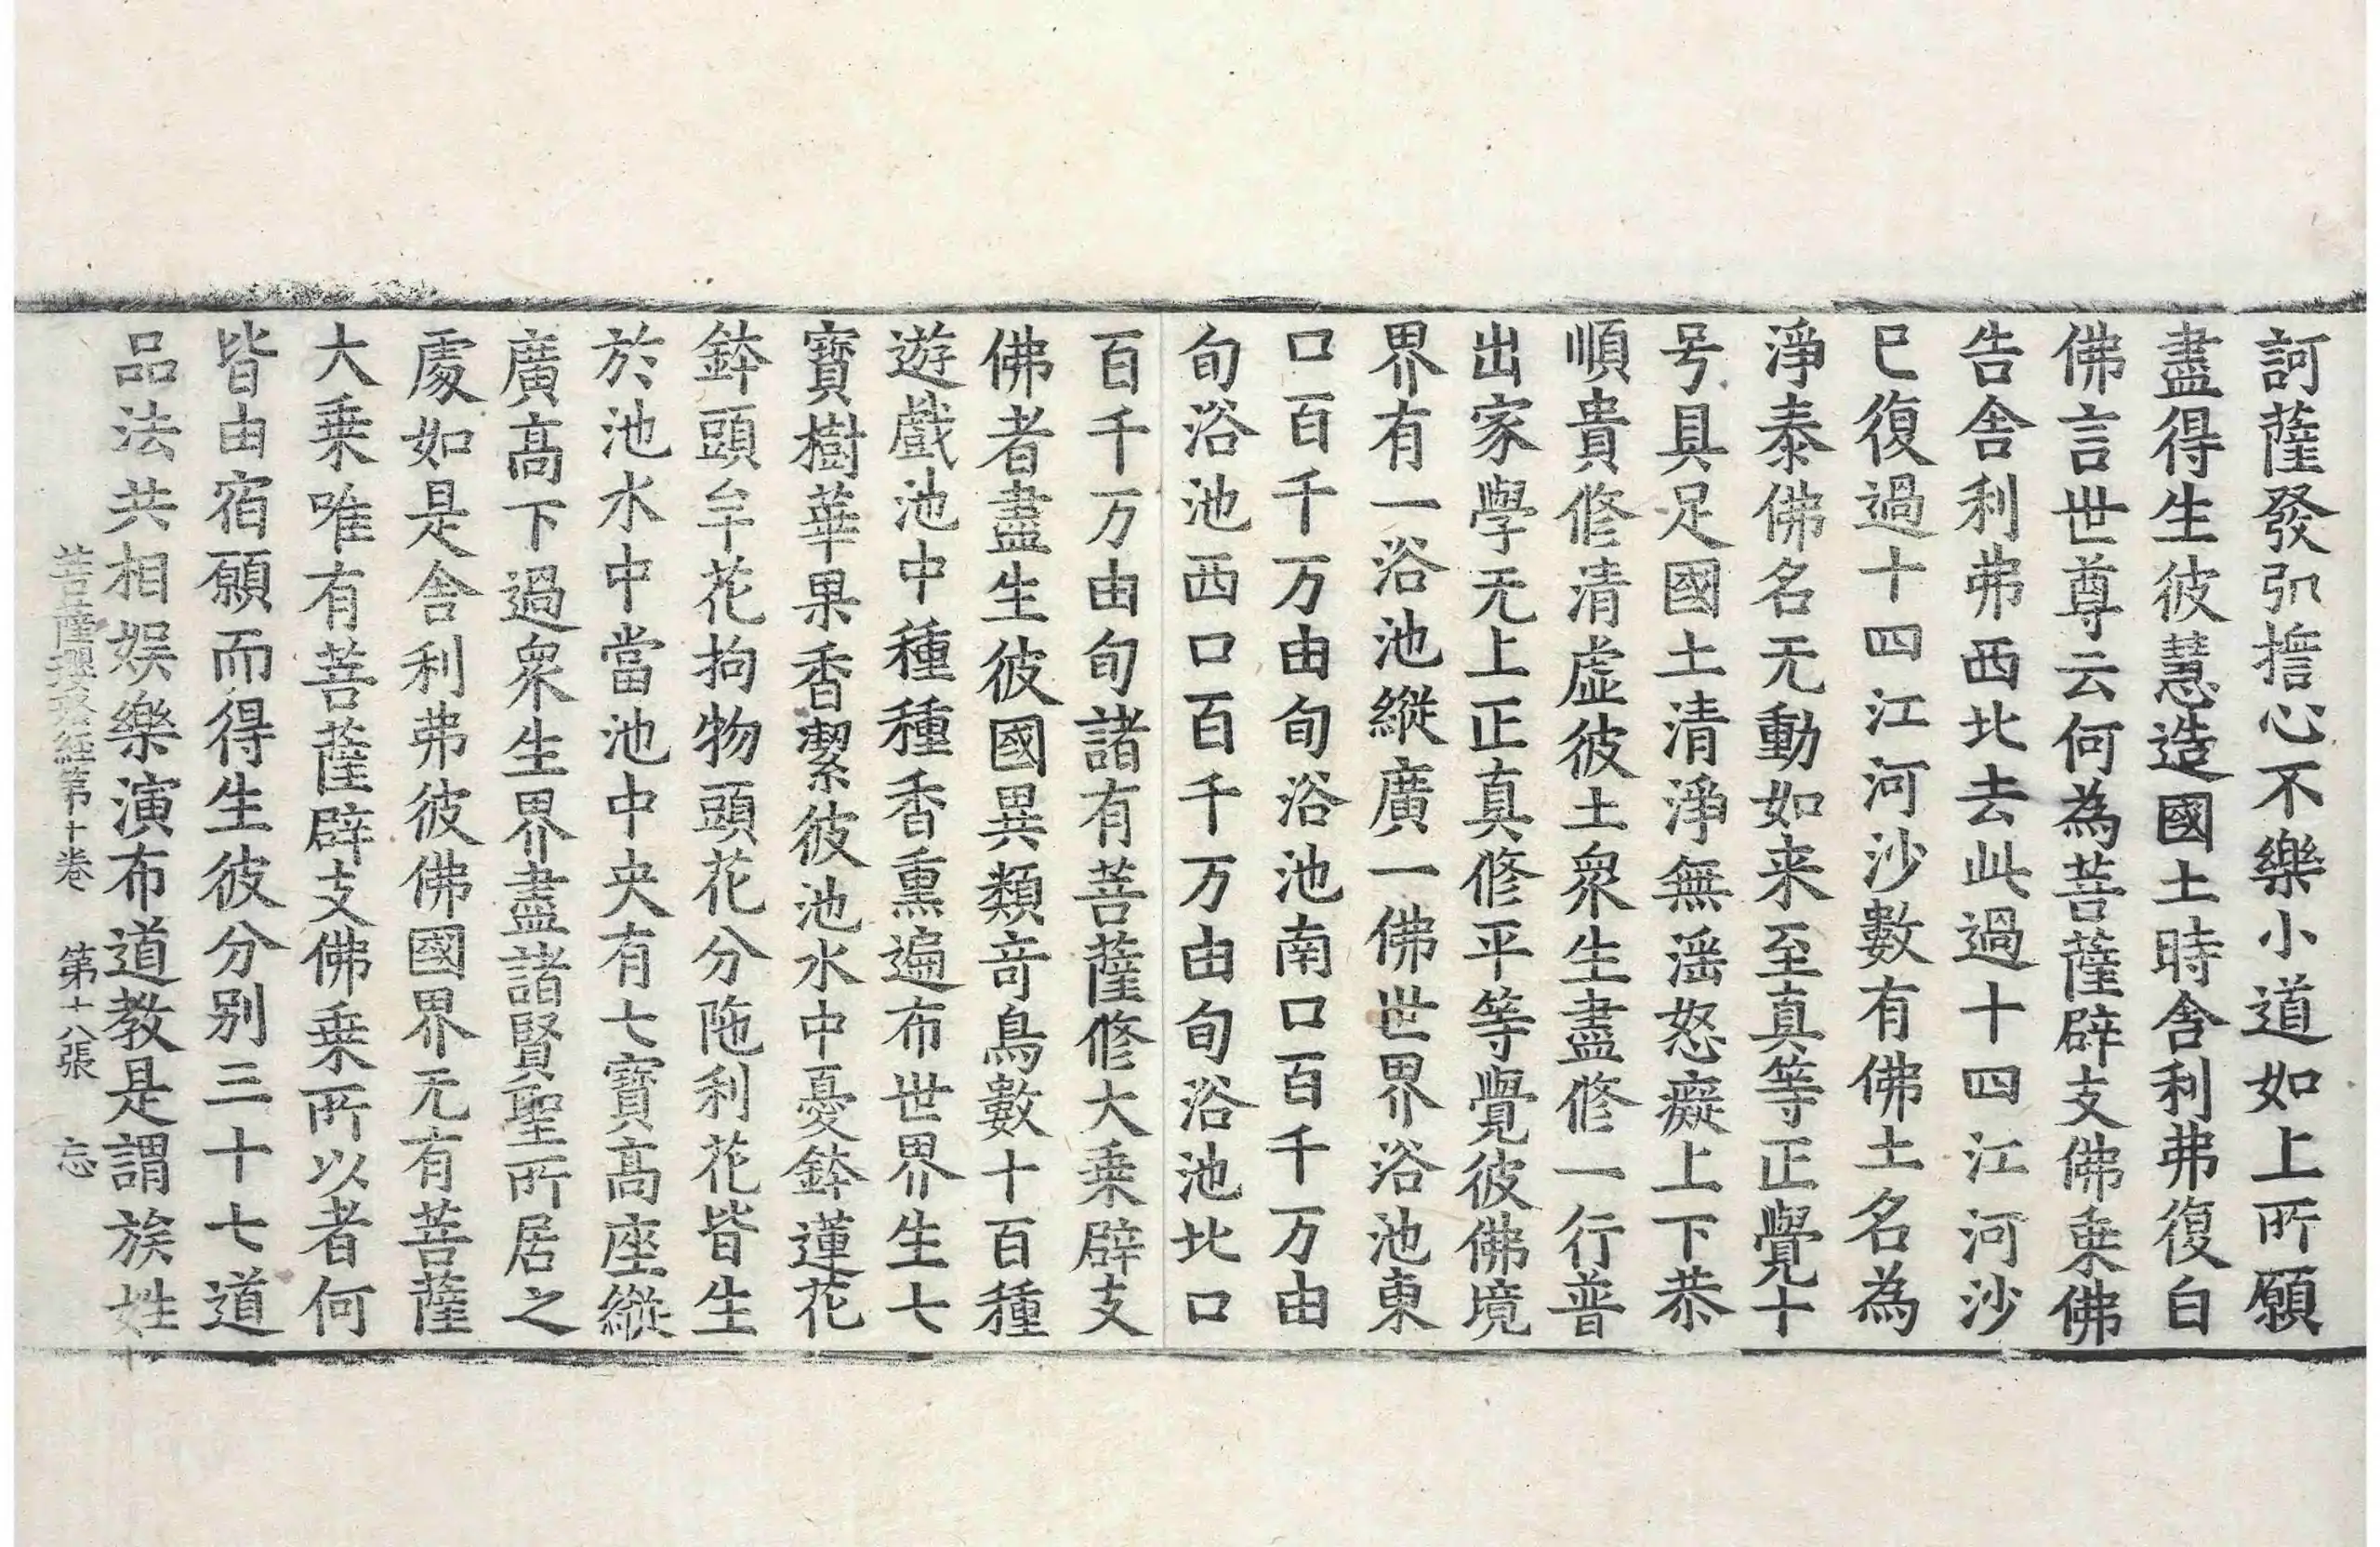 訶薩發弘擔心不樂小道如上所願
盡得生彼慧造國土時舍利弗復白
佛言世尊云何為菩薩辟支佛乗佛
告舍利弗西北去此過十四江河沙
巳復過十四江河沙數有佛土名為
淨泰佛名无動如来至真等正覺十
号具足國土清淨無滛怒癡上下恭
順貴修清虛彼土衆生盡修一行普
出家學无上正真修平等覺彼佛境
界有一浴池縱廣一佛世界浴池東
口百千万由旬浴池南口百千万由
旬浴池西口百千万由旬浴池北口
百千万由旬諸有菩薩修大乗辟支
佛者盡生彼國異類竒鳥數十百種
遊戲池中種種香熏遍布世界生七
寶樹華果香潔彼池水中憂鉢蓮花
鉢頭牟花拘物頭花分陁利花皆生
於池水中當池中央有七寶髙座縱
廣髙下過衆生界盡諸賢聖所居之
處如是舍利弗彼佛國界无有菩薩
大乗唯有菩薩辟支佛乗所以者何
皆由宿願而得生彼分别三十七道
品法共相娱樂演布道教是謂族姓
菩薩瓔珞經第十卷 第十八張 忘